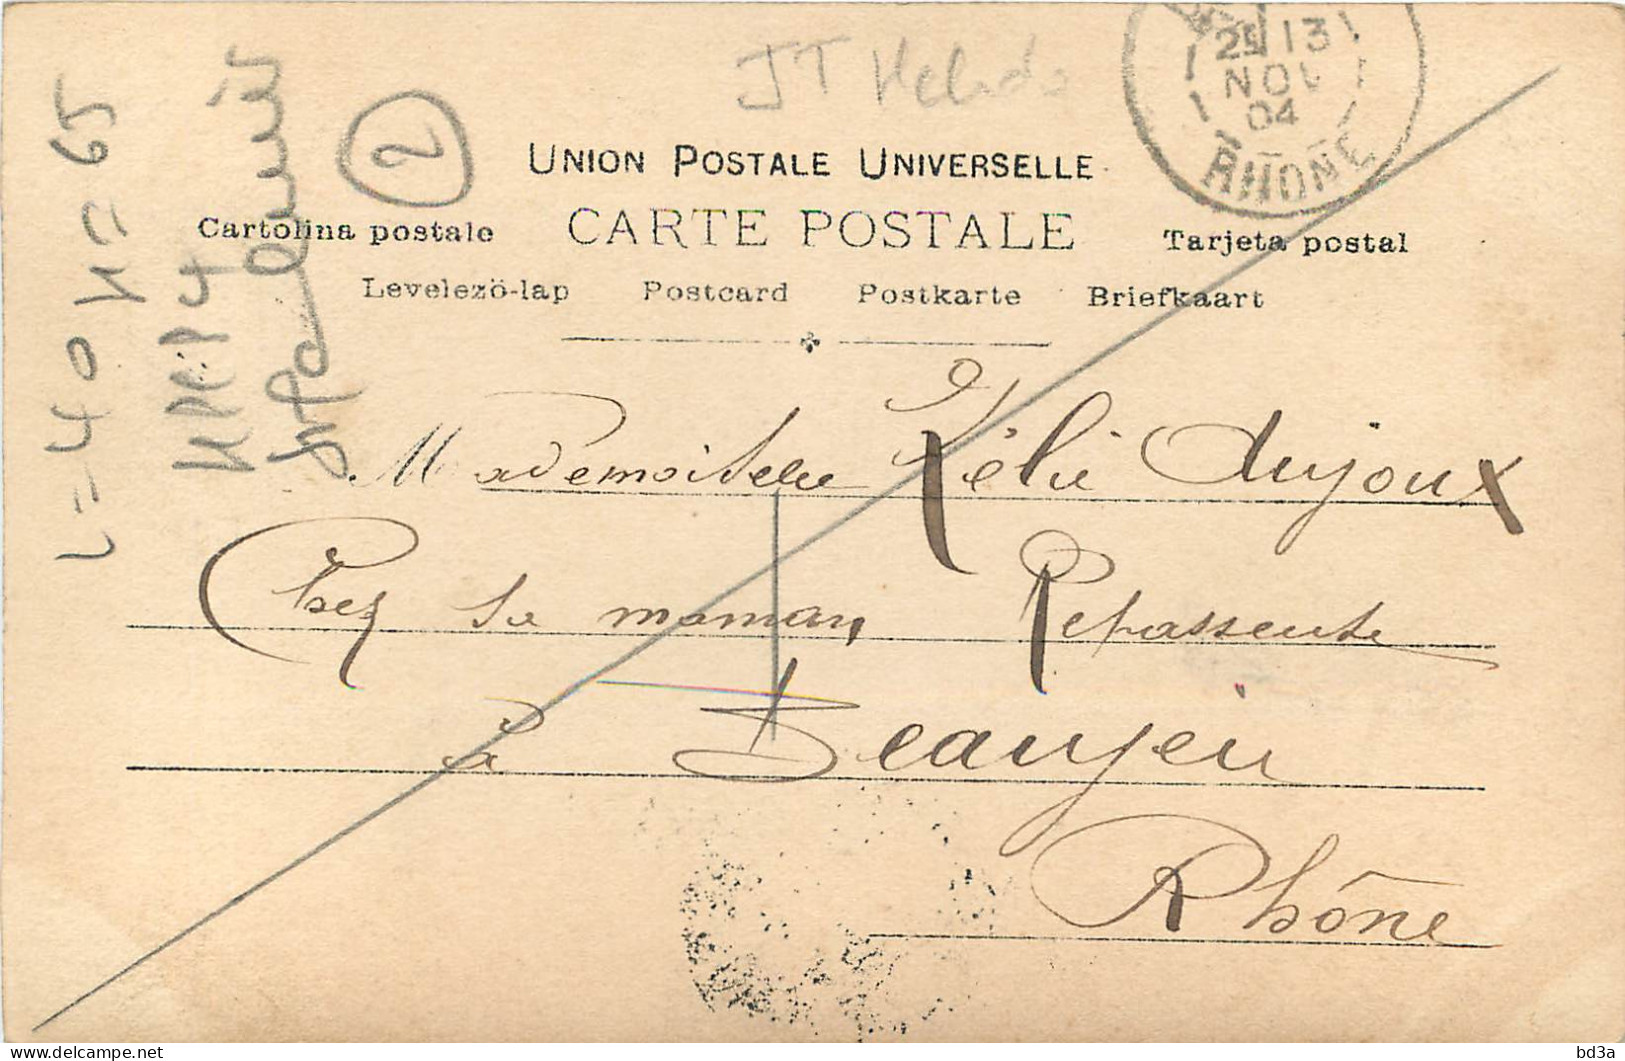 JT Hebdo
25 13
NOV
04
RHONE
2
UNION POSTALE UNIVERSELLE
CARTE POSTALE
Cartolina postale
Tarjeta postal
Levelezö-lap Postcard Postkarte Briefkaart
Mademoiselle Zélie Dujoux
Chez sa maman, Repassente
à Beaujeu
Rhône
L=40 H=65
bd3a